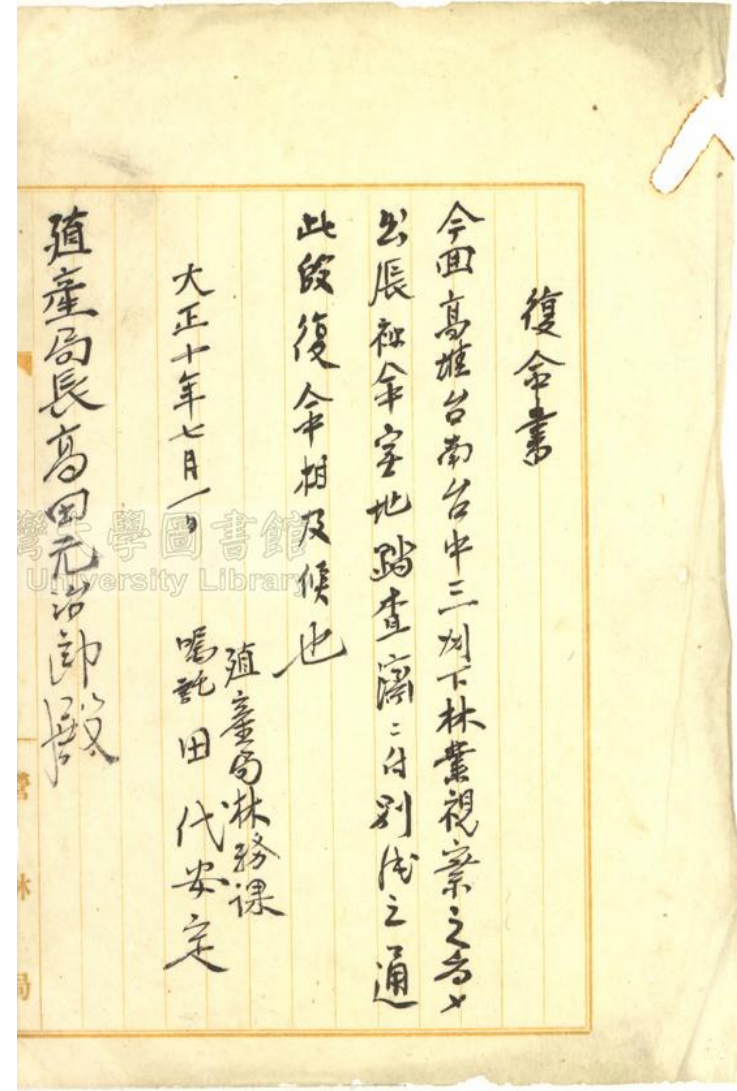 復命書
今回高雄台南台中三州下林業視察之為メ
出張被命実地踏査済ニ付別紙之通
此段復命相及候也
大正十年七月一日
殖産局林務課
嘱託 田代安定
殖産局長高田元治郎殿
營林局
灣大學圖書館
University Library